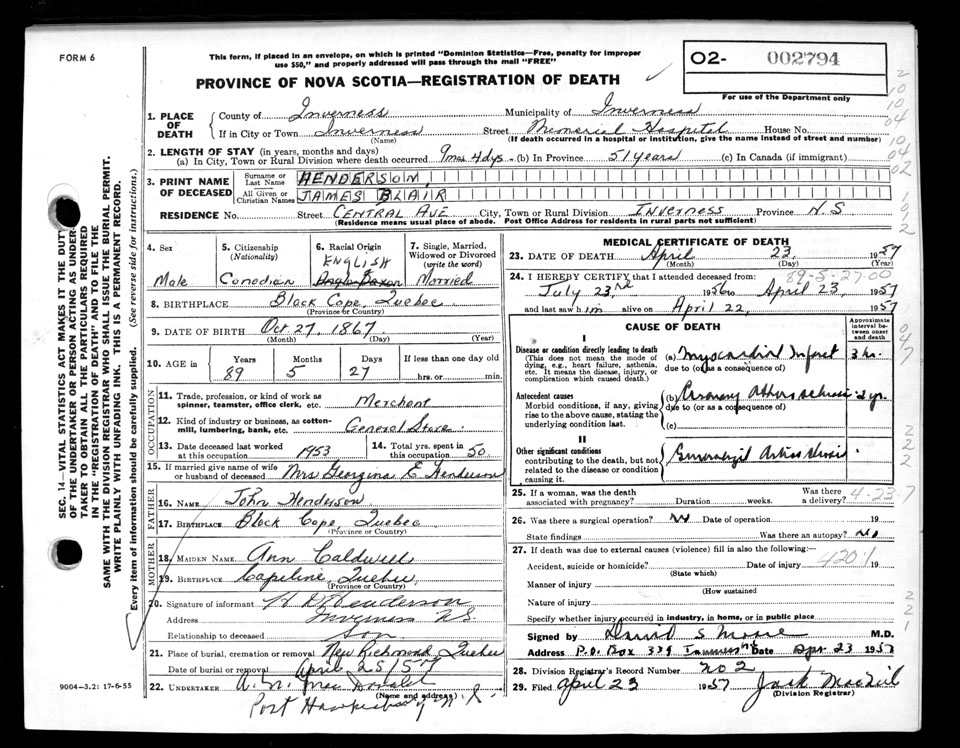 FORM 6
This form, if placed in an envelope, on which is printed "Dominion Statistics—Free, penalty for improper
use $50," and properly addressed will pass through the mail "FREE"
PROVINCE OF NOVA SCOTIA—REGISTRATION OF DEATH
O2- 002794
For use of the Department only
1. PLACE OF DEATH
County of Inverness Municipality of Inverness
If in City or Town Inverness Street Memorial Hospital House No.
(Name) (If death occurred in a hospital or institution, give the name instead of street and number)
2. LENGTH OF STAY (in years, months and days)
(a) In City, Town or Rural Division where death occurred 9mos 4dys - (b) In Province 51 years (c) In Canada (if immigrant)
3. PRINT NAME OF DECEASED
Surname or Last Name HENDERSON,
All Given or Christian Names JAMES BLAIR
RESIDENCE No. Street CENTRAL AVE City, Town or Rural Division INVERNESS Province N.S
(Residence means usual place of abode. Post Office Address for residents in rural parts not sufficient)
4. Sex Male
5. Citizenship (Nationality) Canadian
6. Racial Origin ENGLISH Anglo Saxon
7. Single, Married, Widowed or Divorced (write the word) Married
8. BIRTHPLACE Black Cape, Quebec
(Province or Country)
9. DATE OF BIRTH Oct 27, 1867.
(Month) (Day) (Year)
10. AGE in Years 89 Months 5 Days 27 If less than one day old hrs. or min.
OCCUPATION
11. Trade, profession, or kind of work as spinner, teamster, office clerk, etc. Merchant
12. Kind of industry or business, as cotton-mill, lumbering, bank, etc. General Store
13. Date deceased last worked at this occupation 1953
14. Total yrs. spent in this occupation 50
15. If married give name of wife or husband of deceased Mrs Georgina E Henderson
FATHER
16. NAME John Henderson
17. BIRTHPLACE Black Cape, Quebec
MOTHER
18. MAIDEN NAME Ann Caldwell
19. BIRTHPLACE Quebec
(Province or Country)
20. Signature of informant Henderson
Address Inverness N.S.
Relationship to deceased Son
21. Place of burial, cremation or removal New Richmond, Quebec
Date of burial or removal April 25/57
22. UNDERTAKER A. M. MacDonald
(Name and address)
Port Hawkesbury N.S.
9004-3.2: 17-6-55
SEC. 14—VITAL STATISTICS ACT MAKES IT THE DUTY
OF THE UNDERTAKER OR PERSON ACTING AS UNDER-
TAKER TO OBTAIN ALL THE PARTICULARS REQUIRED
IN THE "REGISTRATION OF DEATH" AND TO FILE THE
SAME WITH THE DIVISION REGISTRAR WHO SHALL ISSUE THE BURIAL PERMIT.
WRITE PLAINLY WITH UNFADING INK. THIS IS A PERMANENT RECORD.
Every item of information should be carefully supplied. (See reverse side for instructions.)
MEDICAL CERTIFICATE OF DEATH
23. DATE OF DEATH April 23, 1957
(Month) (Day) (Year)
89-5-27.00
24. I HEREBY CERTIFY that I attended deceased from:
July 23rd 1956 to April 23, 1957
and last saw him alive on April 22, 1957
CAUSE OF DEATH
Approximate interval between onset and death
I
Disease or condition directly leading to death
(This does not mean the mode of dying, e.g., heart failure, asthenia, etc. It means the disease, injury, or complication which caused death.)
(a) Myocardial Infarct 3 hr.
due to (or as a consequence of)
Antecedent causes
Morbid conditions, if any, giving rise to the above cause, stating the underlying condition last.
(b) Coronary 2 yr.
due to (or as a consequence of)
(c)
II
Other significant conditions
contributing to the death, but not related to the disease or condition causing it.
25. If a woman, was the death associated with pregnancy? Duration weeks. Was there a delivery?
4-23-7
26. Was there a surgical operation? No Date of operation 19
State findings Was there an autopsy? No
27. If death was due to external causes (violence) fill in also the following:—
Accident, suicide or homicide? Date of injury 19
(State which)
4201
Manner of injury
(How sustained)
Nature of injury
Specify whether injury occurred in industry, in home, or in public place
Signed by David S Moore M.D.
Address P.O. Box 339 Inverness Date Apr 23 1957
28. Division Registrar's Record Number 202
29. Filed April 23 1957 Jack MacNeil
(Division Registrar)